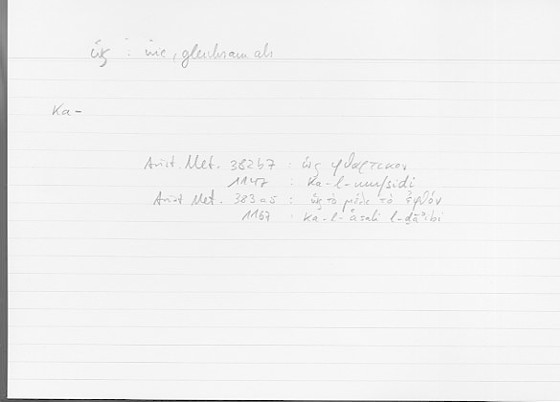 ὡς : wie, gleichsam als
Ka-
Arist. Met. 382b7 : ὡς φθαρτικον
1147 : Ka-l-mufsidi
Arist. Met. 383a5 : ὡς τὸ μέλι τὸ ἑφθόν
1167 : Ka-l-ʿasali l-ḏāʾibi